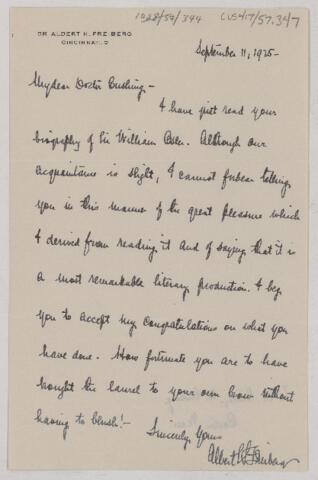 DR ALBERT H. FREIBERG
CINCINNATI, O
1928/59/344
CUS417/57.347
September 11, 1925-
My dear Doctor Cushing -
I have just read your
biography of Sir William Osler. Although our
acquaintance is slight, I cannot forbear telling
you in this manner of the great pleasure which
I derived from reading it and of saying that it is
a most remarkable literary production. I beg
you to accept my congratulations on what you
have done. How fortunate you are to have
brought the laurel to your own brow without
having to blush! -
Sincerely Yours
Albert H Freiberg